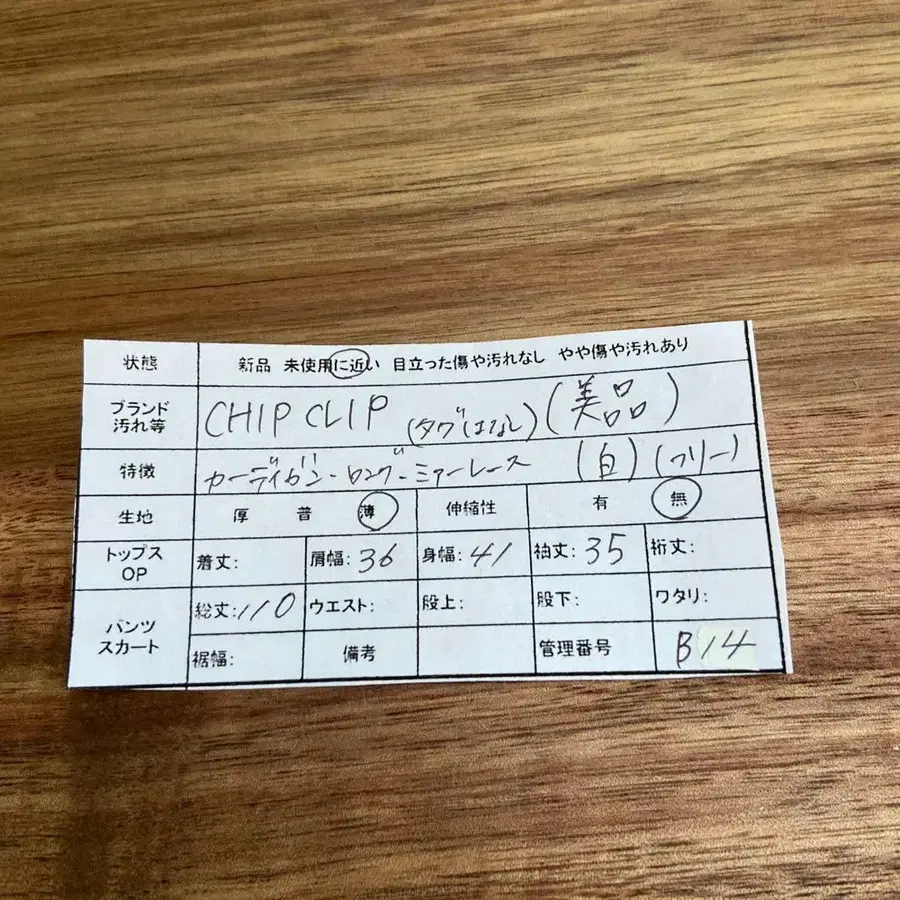 状態 新品 未使用に近い 目立った傷や汚れなし やや傷や汚れあり
ブランド 汚れ等 CHIP CLIP (タグはなし) (美品)
特徴 カーディガン・ロング・ミラーレース (白) (フリー)
生地 厚 普 薄 伸縮性 有 無
トップス OP 着丈: 肩幅:36 身幅:41 袖丈:35 裄丈:
パンツ スカート 総丈:110 ウエスト: 股上: 股下: ワタリ:
裾幅: 備考 管理番号 B14